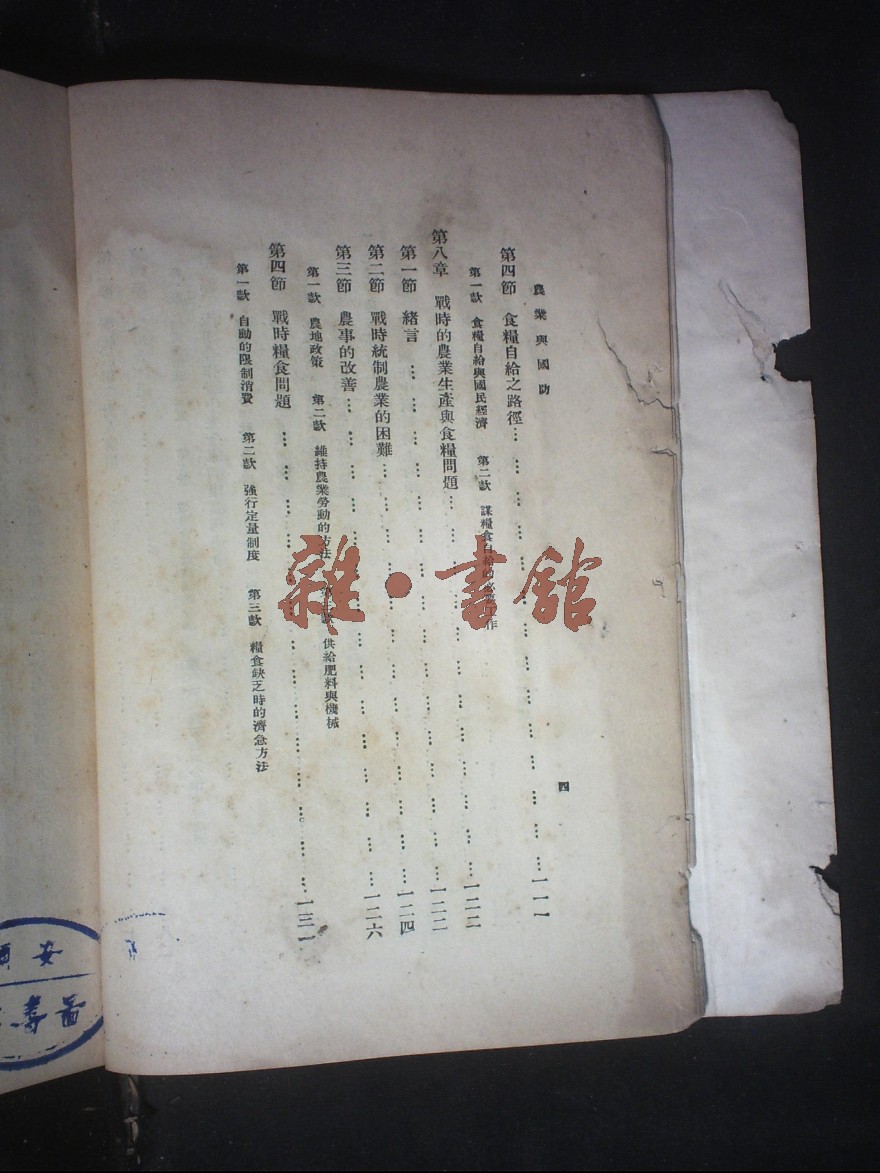 農業與國防
四
第四節 食糧自給之路徑………………………………一一一
第一款 食糧自給與國民經濟 第二款 謀糧食自給的工作
第八章 戰時的農業生產與食糧問題………………………………一二二
第一節 緒言………………………………一二二
第二節 戰時統制農業的困難………………………………一二四
第三節 農事的改善………………………………一二六
第一款 農地政策 第二款 維持農業勞動的方法 第三款 供給肥料與機械
第四節 戰時糧食問題………………………………一三一
第一款 自動的限制消費 第二款 強行定量制度 第三款 糧食缺乏時的濟急方法
雜·書館